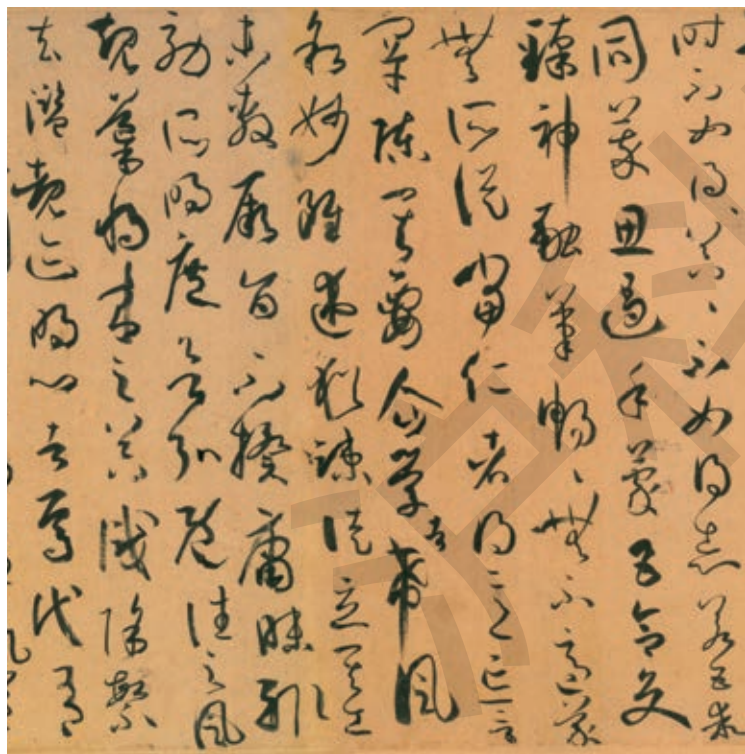 時不如得器〻不如得志若五乖
同萃思遏手蒙五合交
臻神融筆暢〻無不適蒙
無所從當仁者得意忘言
罕陳其要企學者希風
敘妙雖述猶疎徒立其工
未敷厥旨不揆庸昧輒
効所明庶欲弘既往之風
規導將來之器識除繁
去濫覩迹明心者焉代有